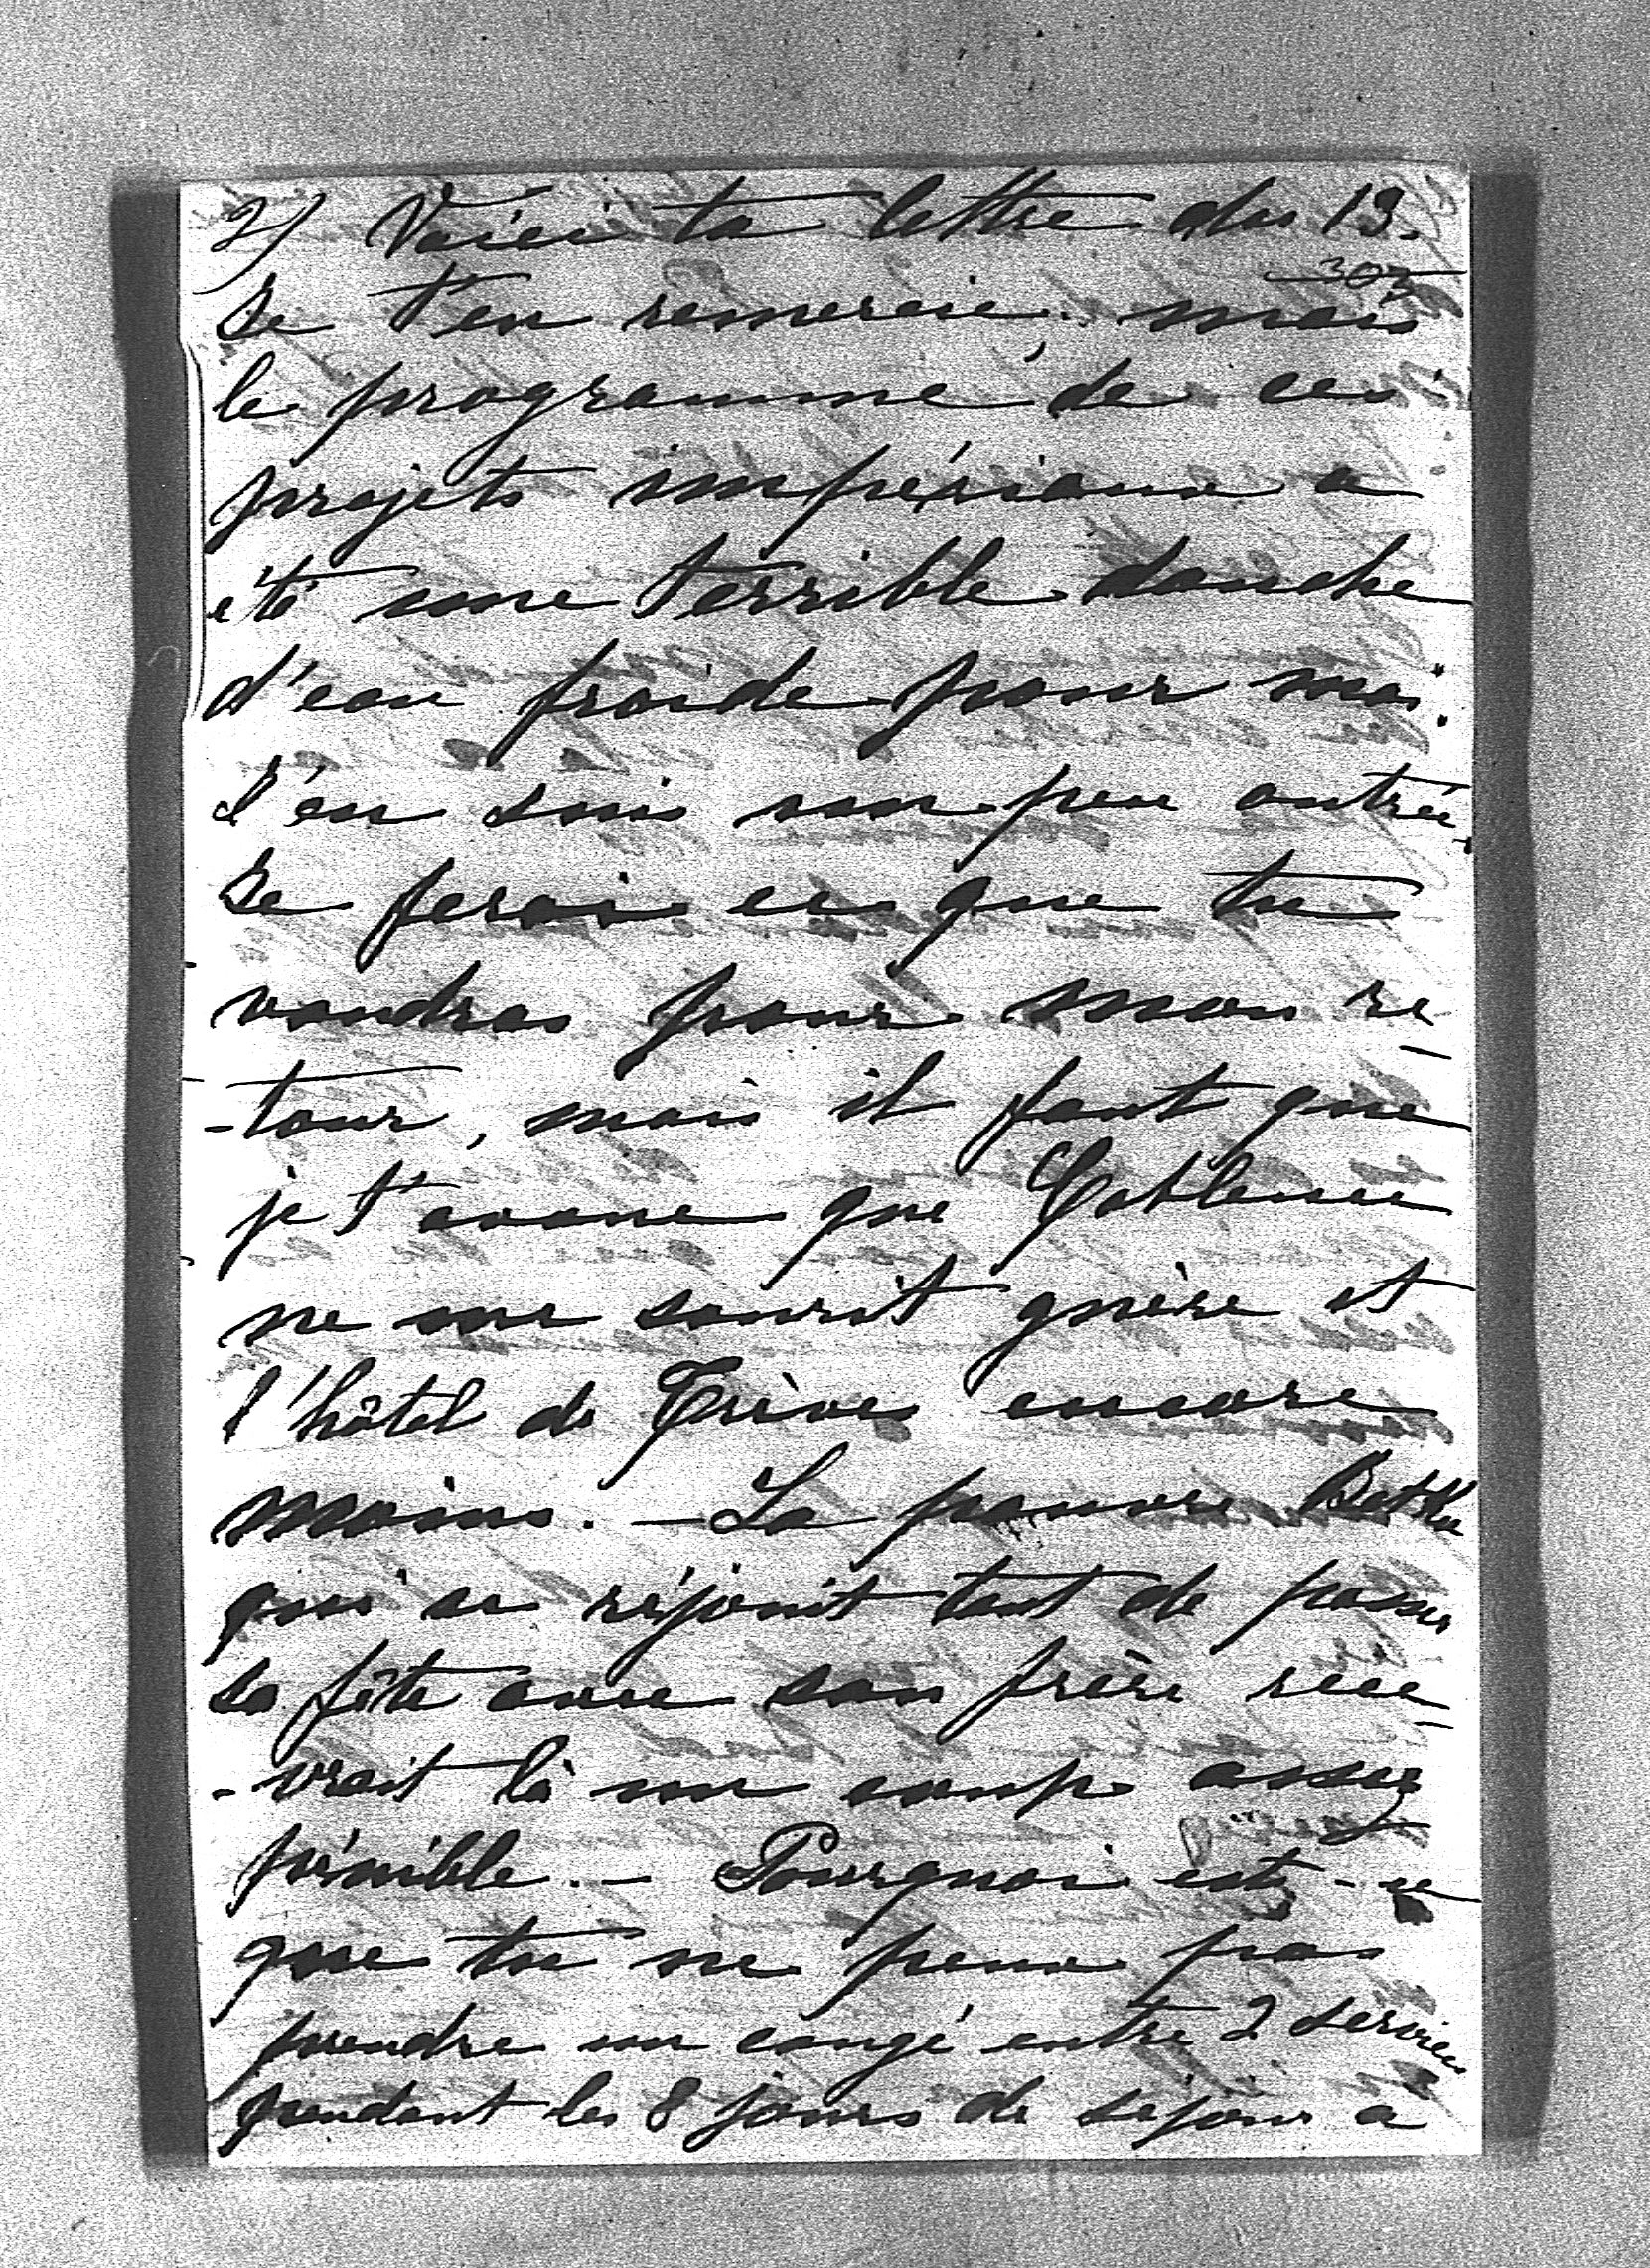 2) Voici ta lettre du 19.
303
Je t'en remercie, mais
le programme de ces
projets impériaux a
été une terrible douche
d'eau froide pour moi.
J'en suis un peu outrée.
Je ferai ce que tu
voudras pour mon re
-tour, mais il faut que
je t'avoue que Coblence
ne me sourit guère et
l'hôtel de Trèves encore
moins. — La pauvre
qui se réjouit tant de passer
sa fête avec son frère rece
-vrait là un coup assez
pénible. — Pourquoi est-ce
que tu ne peux pas
prendre un congé entre 2 services
pendant les 8 jours de séjour à